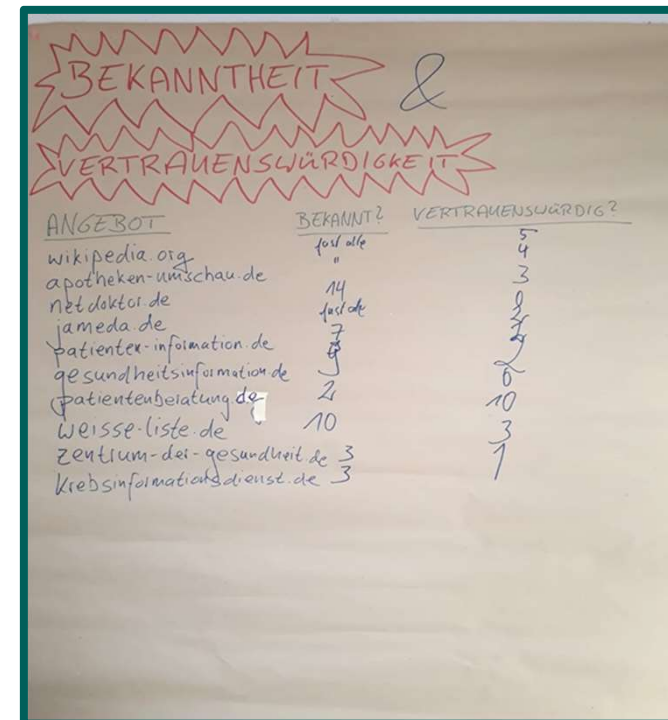 BEKANNTHEIT &
VERTRAUENSWÜRDIGKEIT
ANGEBOT BEKANNT? VERTRAUENSWÜRDIG?
wikipedia.org fast alle 5
apotheken-umschau.de " 4
netdoktor.de 14 3
jameda.de fast alle
patienten-information.de 7
gesundheitsinformation.de
patientenberatung.de 2
weisse-liste.de 10 10
zentrum-der-gesundheit.de 3 3
krebsinformationsdienst.de 3 1